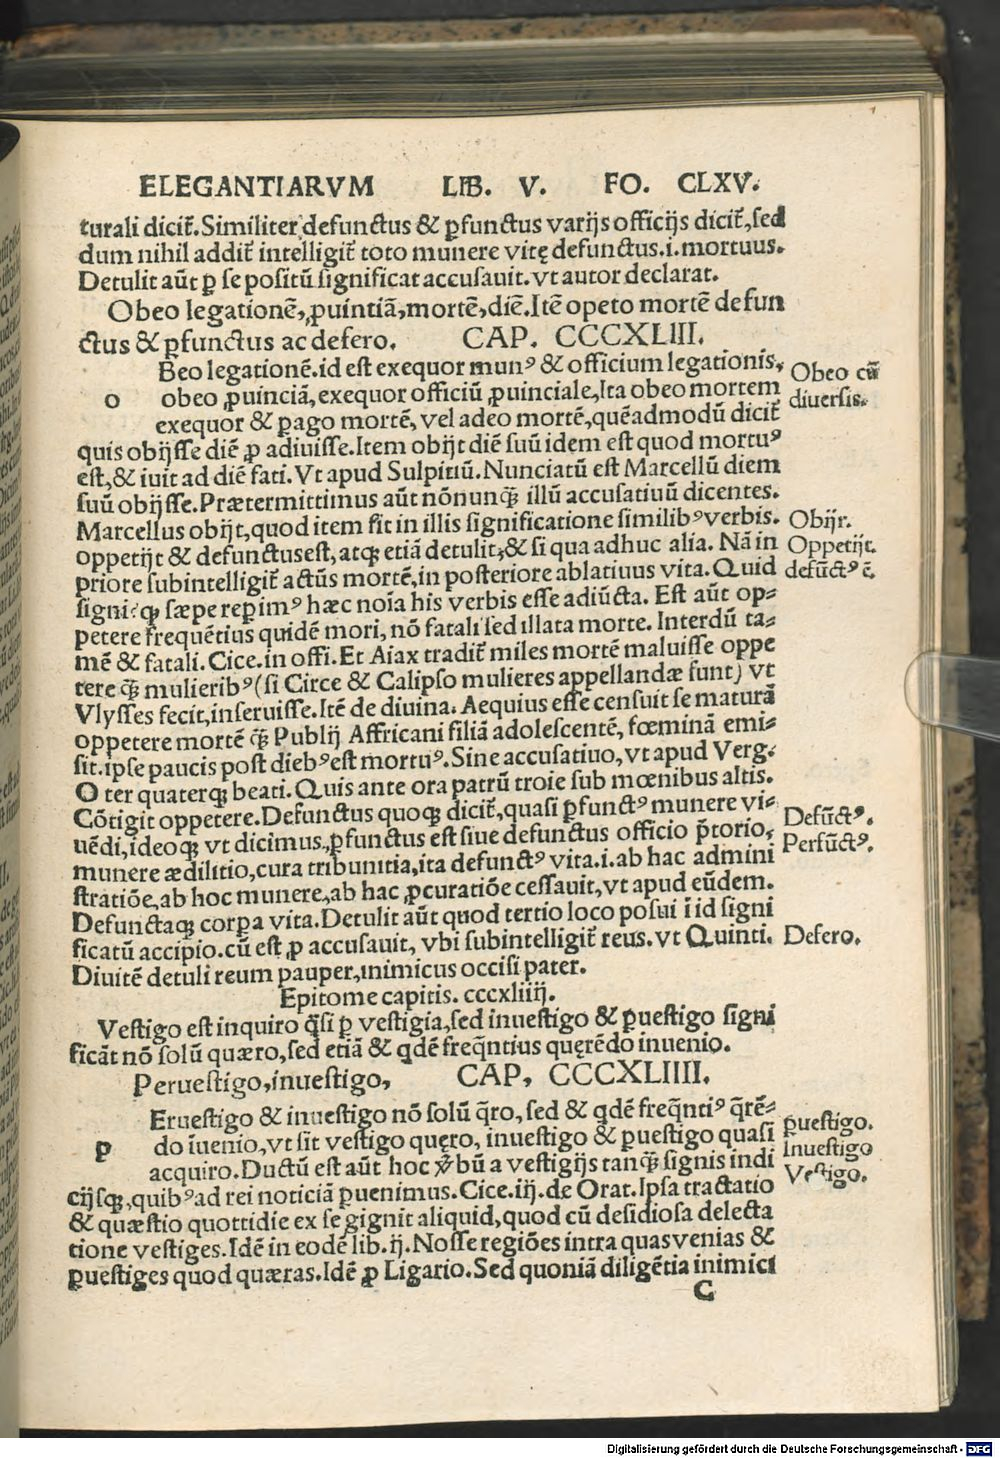 ELEGANTIARVM LIB. V. FO. CLXV.
turali dicit̃. Similiter defunctus & ꝑfunctus varijs officijs dicit̃, sed
dum nihil addit̃ intelligit̃ toto munere vitę defunctus .i. mortuus.
Detulit aũt ꝑ se positũ significat accusauit. vt autor declarat.
Obeo legationẽ, ꝓuintiã, mortẽ, diẽ. Itẽ opeto mortẽ defun
ctus & ꝑfunctus ac defero. CAP. CCCXLIII.
Beo legationẽ. id est exequor munꝰ & officium legationis,
o obeo ꝓuinciã, exequor officiũ ꝓuinciale, Ita obeo mortem
exequor & pago mortẽ, vel adeo mortẽ, quẽadmodũ dicit̃
quis obijsse diẽ ꝓ adiuisse. Item obijt diẽ suũ idem est quod mortuꝰ
est, & iuit ad diẽ fati. Vt apud Sulpitiũ. Nunciatũ est Marcellũ diem
suũ obijsse. Prætermittimus aũt nõnunꝙ̃ illũ accusatiuũ dicentes.
Marcellus obijt, quod item fit in illis significatione similibꝰ verbis.
oppetijt & defunctusest, atqꝫ etiã detulit, & si qua adhuc alia. Nã in
priore subintelligit̃ actũs mortẽ, in posteriore ablatiuus vita. Quid
signi? qꝫ sæpe reperimꝰ hæc noĩa his verbis esse adiũcta. Est aũt op-
petere frequẽtius quidẽ mori, nõ fatali sed illata morte. Interdũ ta-
mẽ & fatali. Cice. in offi. Et Aiax tradit̃ miles mortẽ maluisse oppe
tere ꝙ̃ mulieribꝰ (si Circe & Calipso mulieres appellandæ sunt) vt
Vlysses fecit, inseruisse. Itẽ de diuina. Aequius esse censuit se maturã
oppetere mortẽ ꝙ̃ Publij Affricani filiã adolescentẽ, fœminã emi-
sit. ipse paucis post diebꝰ est mortuꝰ. Sine accusatiuo, vt apud Verg.
O ter quaterqꝫ beati. Quis ante ora patrũ troie sub mœnibus altis.
Cõtigit oppetere. Defunctus quoqꝫ dicit̃, quasi ꝑfunctꝰ munere vi-
uẽdi, ideoqꝫ vt dicimus, ꝑfunctus est siue defunctus officio p̃torio,
munere ædilitio, cura tribunitia, ita defunctꝰ vita .i. ab hac admini
stratiõe, ab hoc munere, ab hac ꝓcuratiõe cessauit, vt apud eũdem.
Defunctaqꝫ corpa vita. Detulit aũt quod tertio loco posui ĩ id signi
ficatũ accipio. cũ est ꝓ accusauit, vbi subintelligit̃ reus. vt Quinti.
Diuitẽ detuli reum pauper, inimicus occisi pater.
Epitome capitis. cccxliiij.
Vestigo est inquiro q̃si ꝑ vestigia, sed inuestigo & ꝑuestigo signi
ficãt nõ solũ quæro, sed etiã & qdẽ freq̃ntius quęrẽdo inuenio.
Peruestigo, inuestigo, CAP. CCCXLIIII.
Eruestigo & inuestigo nõ solũ q̃ro, sed & qdẽ freq̃ntiꝰ q̃rẽ-
p do ĩuenio, vt sit vestigo quęro, inuestigo & ꝑuestigo quasi
acquiro. Ductũ est aũt hoc v̆bũ a vestigijs tanꝙ̃ signis indi
cijsqꝫ, quibꝰ ad rei noticiã ꝑuenimus. Cice. iij. de Orat. Ipsa tractatio
& quæstio quottidie ex se gignit aliquid, quod cũ desidiosa delecta
tione vestiges. Idẽ in eodẽ lib. ij. Nosse regiões intra quas venias &
ꝑuestiges quod quæras. Idẽ ꝓ Ligario. Sed quoniã diligẽtia inimici
C
Obeo cũ
diuersis.
Obijt.
Oppetijt.
defũctꝰ ẽ.
Defũctꝰ.
Perfũctꝰ.
Defero.
ꝑuestigo.
Inuestigo
Vestigo.
Digitalisierung gefördert durch die Deutsche Forschungsgemeinschaft - DFG